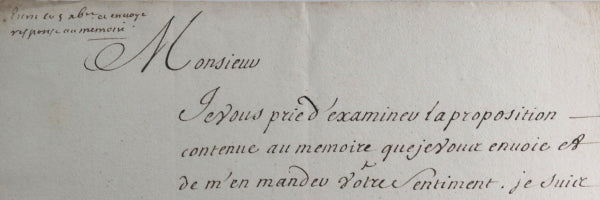 et envoyé
response au memoire
Monsieur
Je vous prie d'examiner la proposition
contenue au memoire que je vous envoie et
de m'en mander vôtre sentiment. je suis